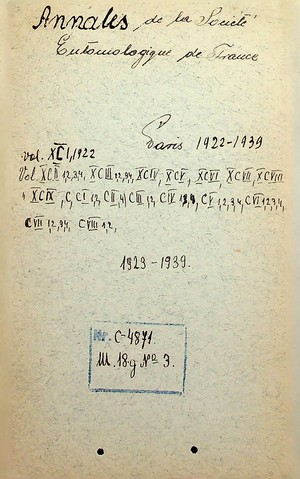 Annales de la Société
Entomologique de France
Paris 1922-1939
Vol. XCI, 1922
Vol. XCII 1,2,3,4, XCIII 1,2,3,4, XCIV, XCV, XCVI, XCVII, XCVIII
XCIX, C, CI 1,2, CII, CIII 1,2, CIV, CV 1,2,3,4, CVI 1,2,3,4,
CVII 1,2,3,4, CVIII 1,2,
1923-1939.
Nr. C-4871.
M. 18.g Nº 3.